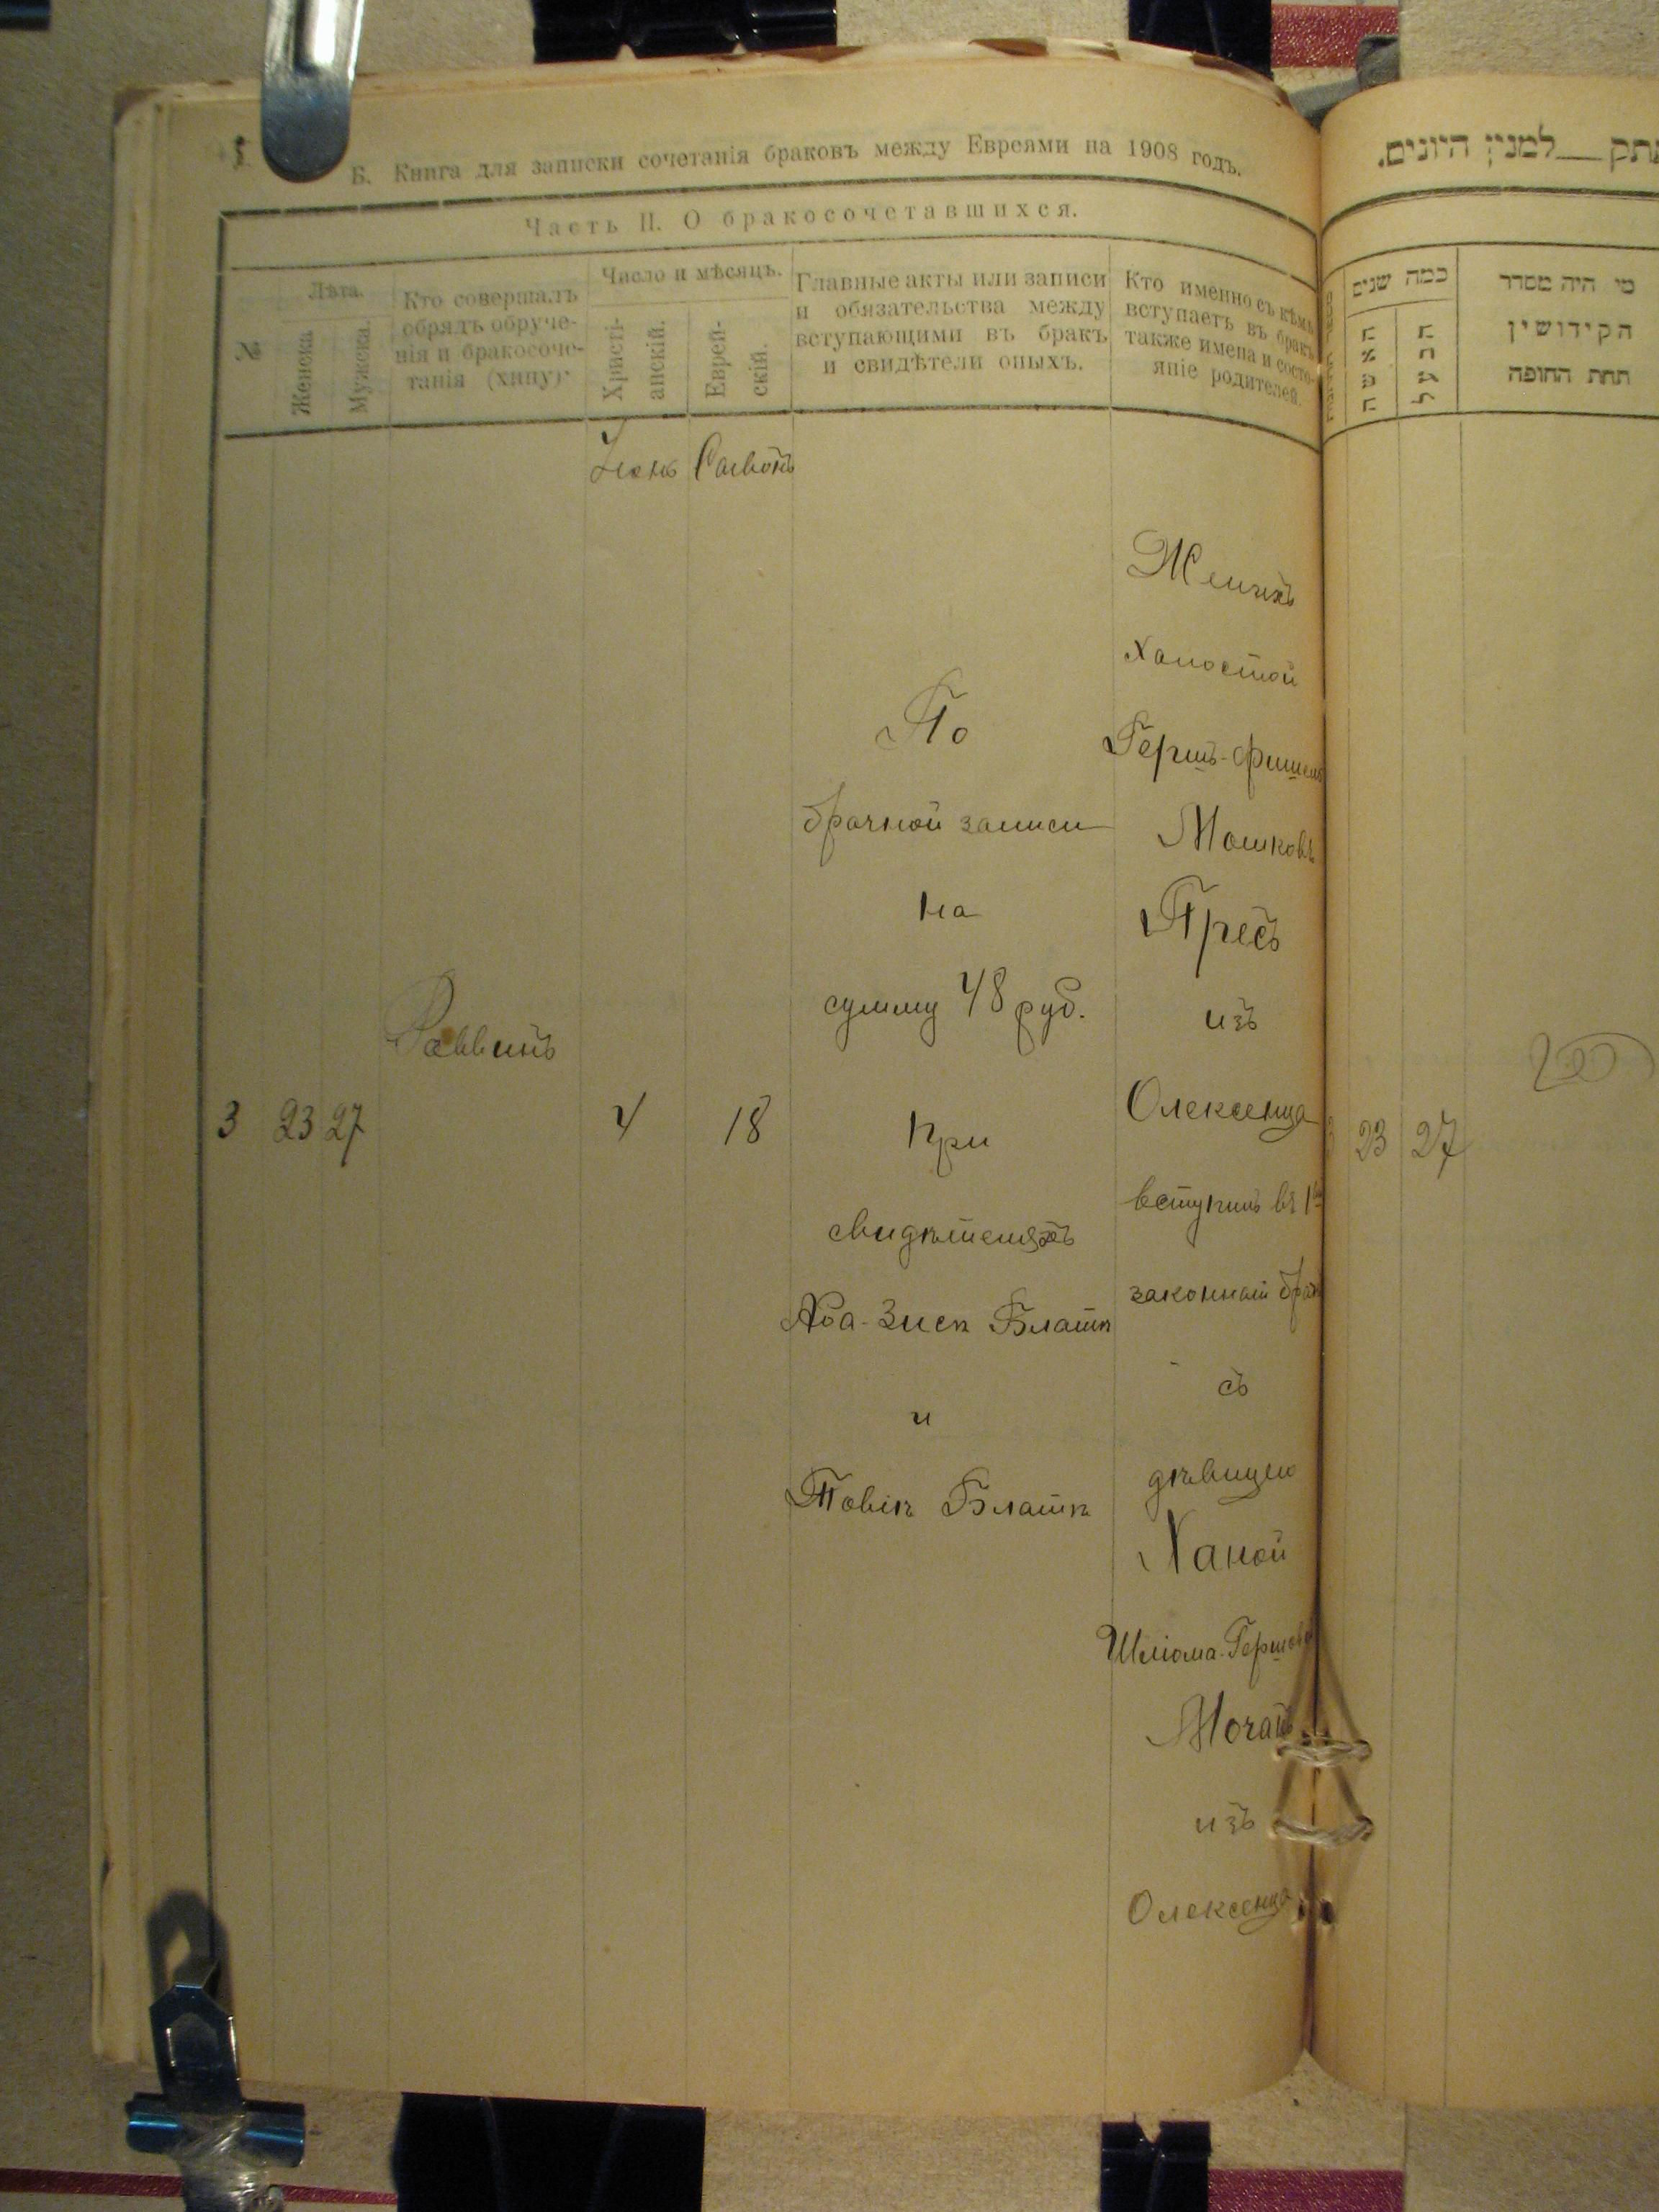 Б. Книга для записки сочетанія браковъ между Евреями на 1908 годъ.
Часть II. О бракосочетавшихся.
№
Лѣта.
Женска.
Мужска.
Кто совершалъ
обрядъ обруче-
нія и бракосоче-
танія (хипу).
Число и мѣсяцъ.
Христі-
анскій.
Еврей-
скій.
Главные акты или записи
и обязательства между
вступающими въ бракъ
и свидѣтели оныхъ.
Кто именно съ кѣмъ
вступаетъ въ бракъ
также имена и состо-
яніе родителей.
3
23
27
Раввинъ
4
18
По
брачной записи
на
сумму 48 руб.
при
свидѣтеляхъ
Аба-Зись Блатъ
и
Товій Блатъ
Женихъ
холостой
Герш-Фишель
Мошковъ
Пресъ
изъ
Олексенца
вступилъ въ 1й
законный бракъ
съ
дѣвицею
Ханой
Шліома-Гершова
изъ
Олексенца
למנין היונים.
כמה שנים
האשה
הגל
מי היה מסדר
הקידושין
תחת החופה
23
27